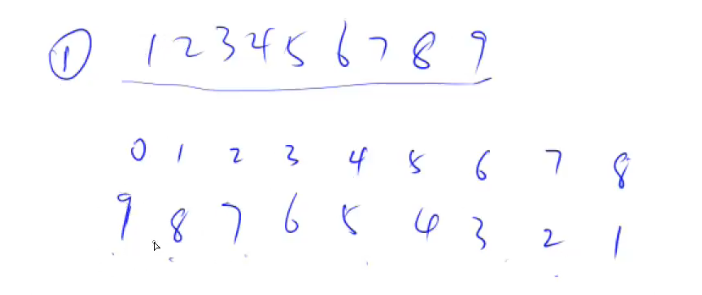 ① 1 2 3 4 5 6 7 8 9
0 1 2 3 4 5 6 7 8
9 8 7 6 5 4 3 2 1